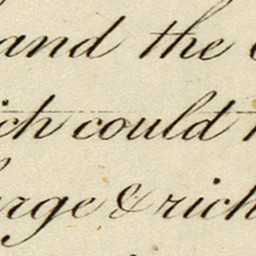 and the
ich could
arge & rich